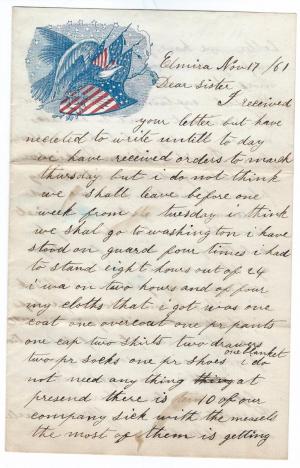 Elmira Nov 17 / 61
Dear Sister
I received
your letter but have
neclected to write untill to day
we have received orders to march
thursday but i do not think
we shall leave before one
week from tuesday i think
we shal go to washington i have
stood on guard four times i had
to stand eight hours out of 24
i wa on two hours and of four
my cloths that i got was one
coat one overcoat one pr pants
one cap two shirts two drawers
one blanket
two pr socks one pr shoes i do
not need any thing thing at
presend there is 10 of our
company sick with the measels
the most of them is getting